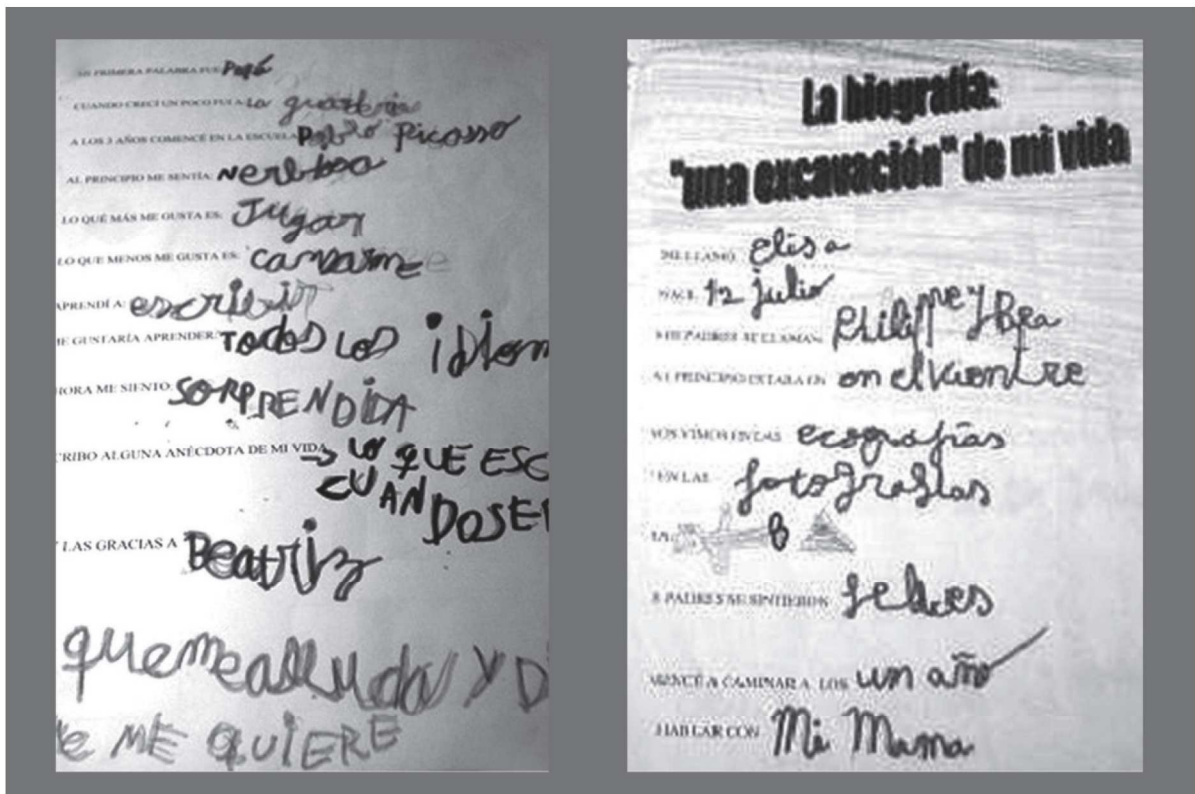 MI PRIMERA PALABRA FUE: Papá
CUANDO CRECÍ UN POCO FUI A: la guarderia
A LOS 3 AÑOS COMENCÉ EN LA ESCUELA: Pablo Picosso
AL PRINCIPIO ME SENTÍA: Nerbiosa
LO QUÉ MÁS ME GUSTA ES: Jugar
LO QUE MENOS ME GUSTA ES: cansarme
APRENDÍ A: escribir
E GUSTARÍA APRENDER: TODOS LOS idiom
HORA ME SIENTO: SORPRENDIDA
CRIBO ALGUNA ANÉCDOTA DE MI VIDA → LO QUE ESC
CUANDO SE
LAS GRACIAS A Beatriz
que me alludo Y D
e ME QUIERE
La biografía:
"una excavación" de mi vida
ME LLAMO: Elisa
NACÍ: 12 julio
MIS PADRES SE LLAMAN: Philippe y Bea
AL PRINCIPIO ESTABA EN en el vientre
NOS VIMOS EN LAS ecografías
Y EN LAS fotografías
8
S PADRES SE SINTIERON felices
MENCÉ A CAMINAR A LOS un año
HABLAR CON Mi Mama